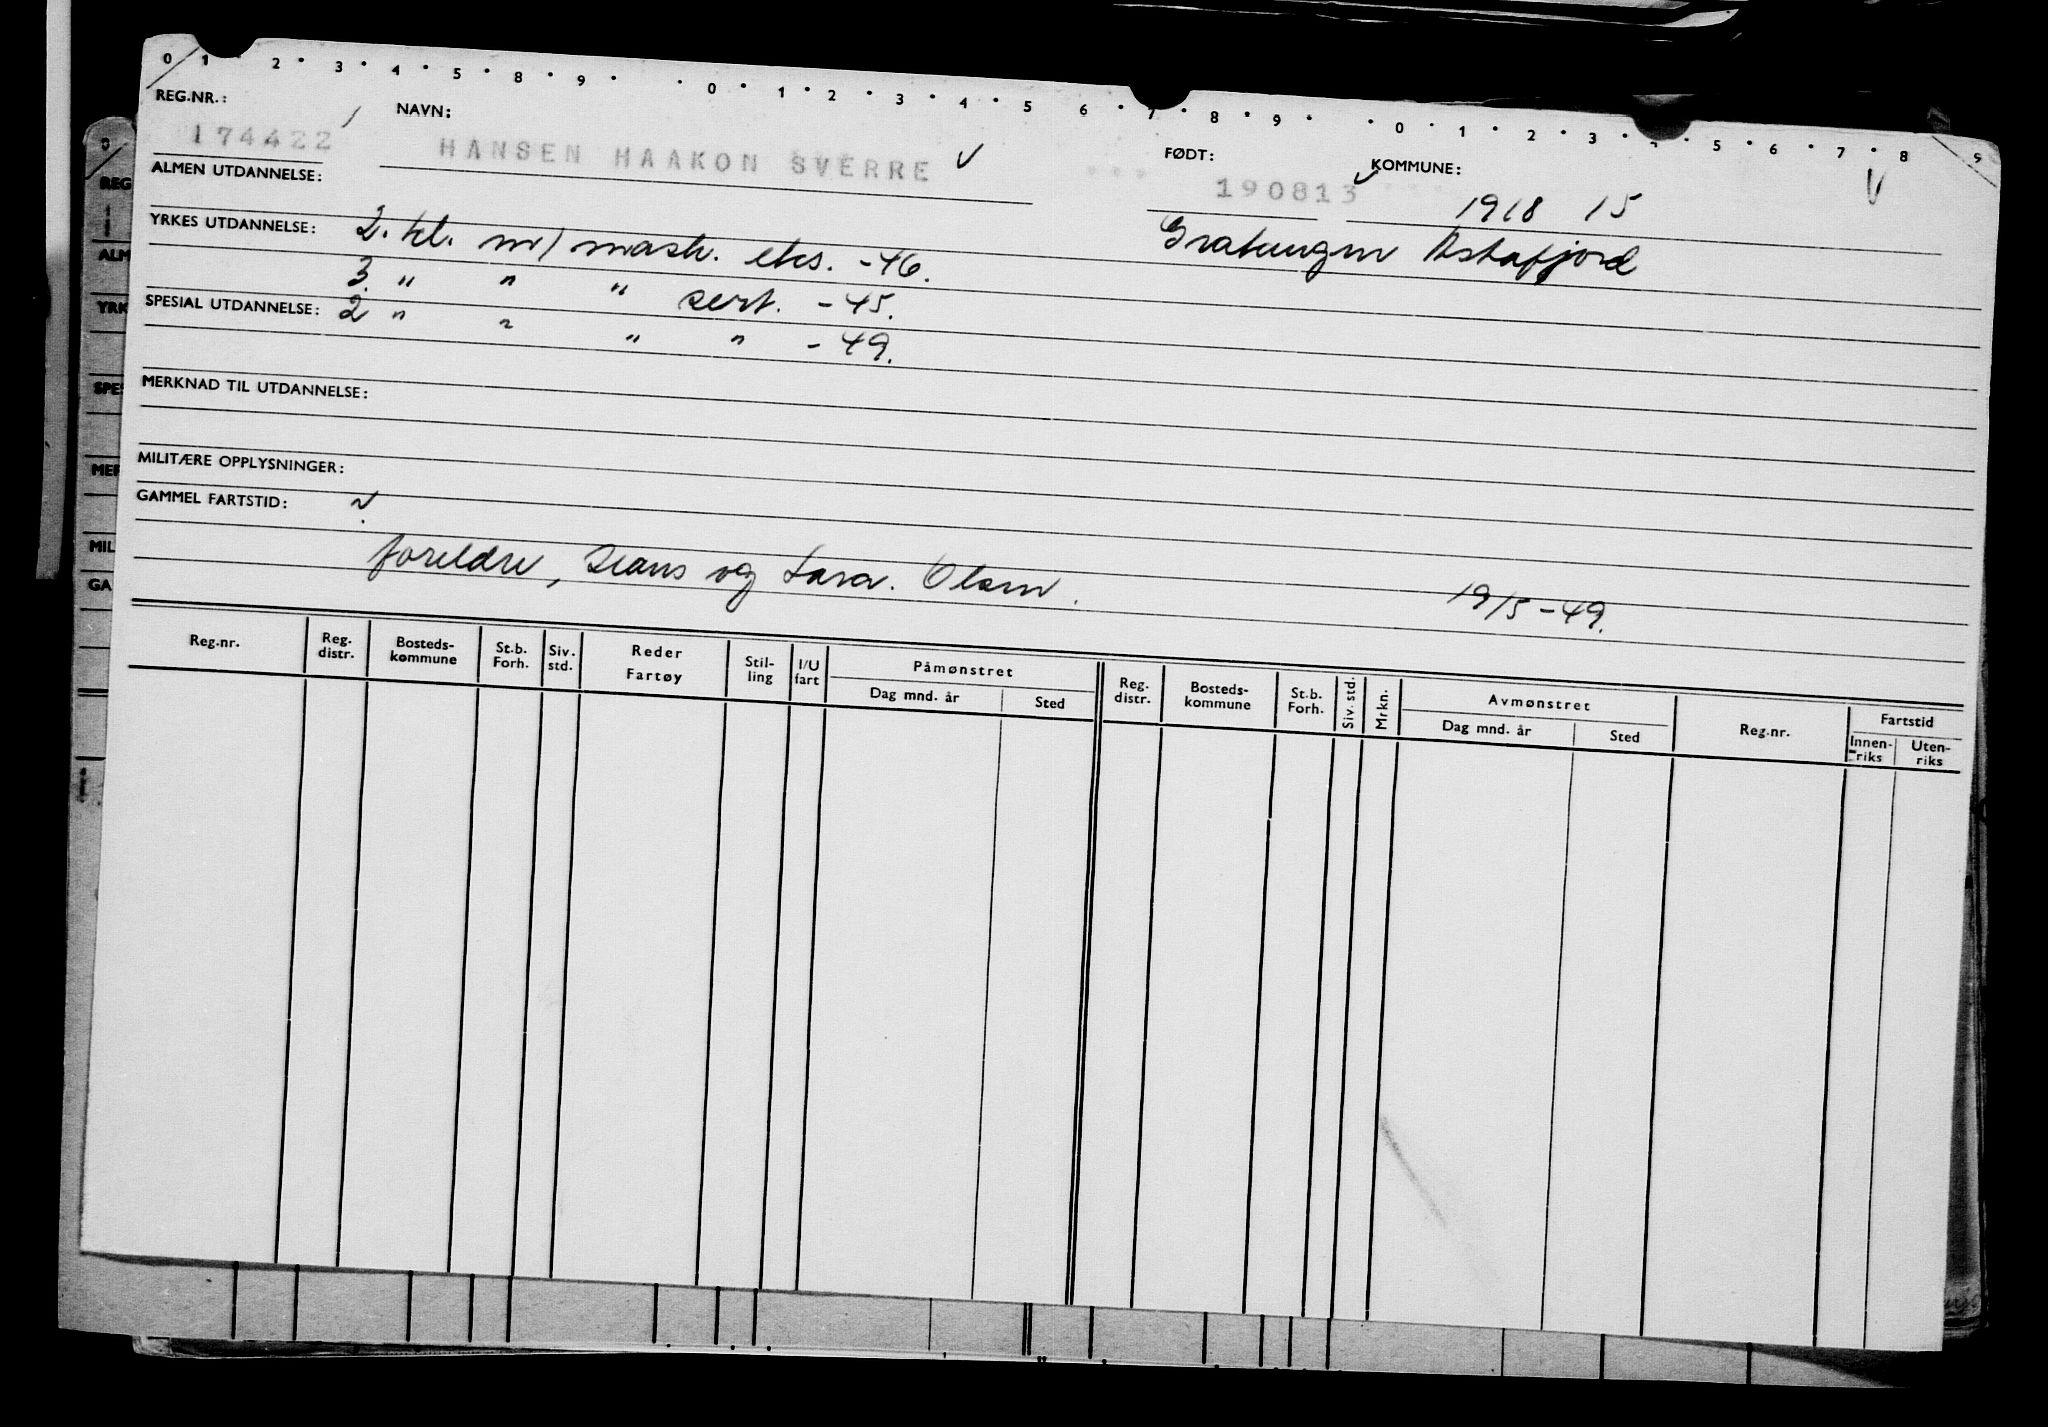 0 1 2 3 4 5 8 9 0 1 2 3 4 5 6 7 8 9 0 1 2 3 5 6 7 8 9
REG.NR.: NAVN: FØDT: KOMMUNE:
174422 HANSEN HAAKON SVERRE 190813 1918 15
ALMEN UTDANNELSE: Gratangen Astafjord
YRKES UTDANNELSE: 2. kl. m/ mask. eks. -46.
3. " " " sert. -45.
SPESIAL UTDANNELSE: 2 " " " " -49.
MERKNAD TIL UTDANNELSE:
MILITÆRE OPPLYSNINGER:
GAMMEL FARTSTID:
foreldre, Hans og Lava. Olsen. 19/5-49.
Reg.nr. Reg. distr. Bosteds-kommune St.b. Forh. Siv. std. Reder Fartøy Stil-ling I/U fart Påmønstret Dag mnd. år Sted Reg. distr. Bosteds-kommune St.b. Forh. Siv. std. Mrkn. Avmønstret Dag mnd. år Sted Reg.nr. Fartstid Innen-riks Uten-riks